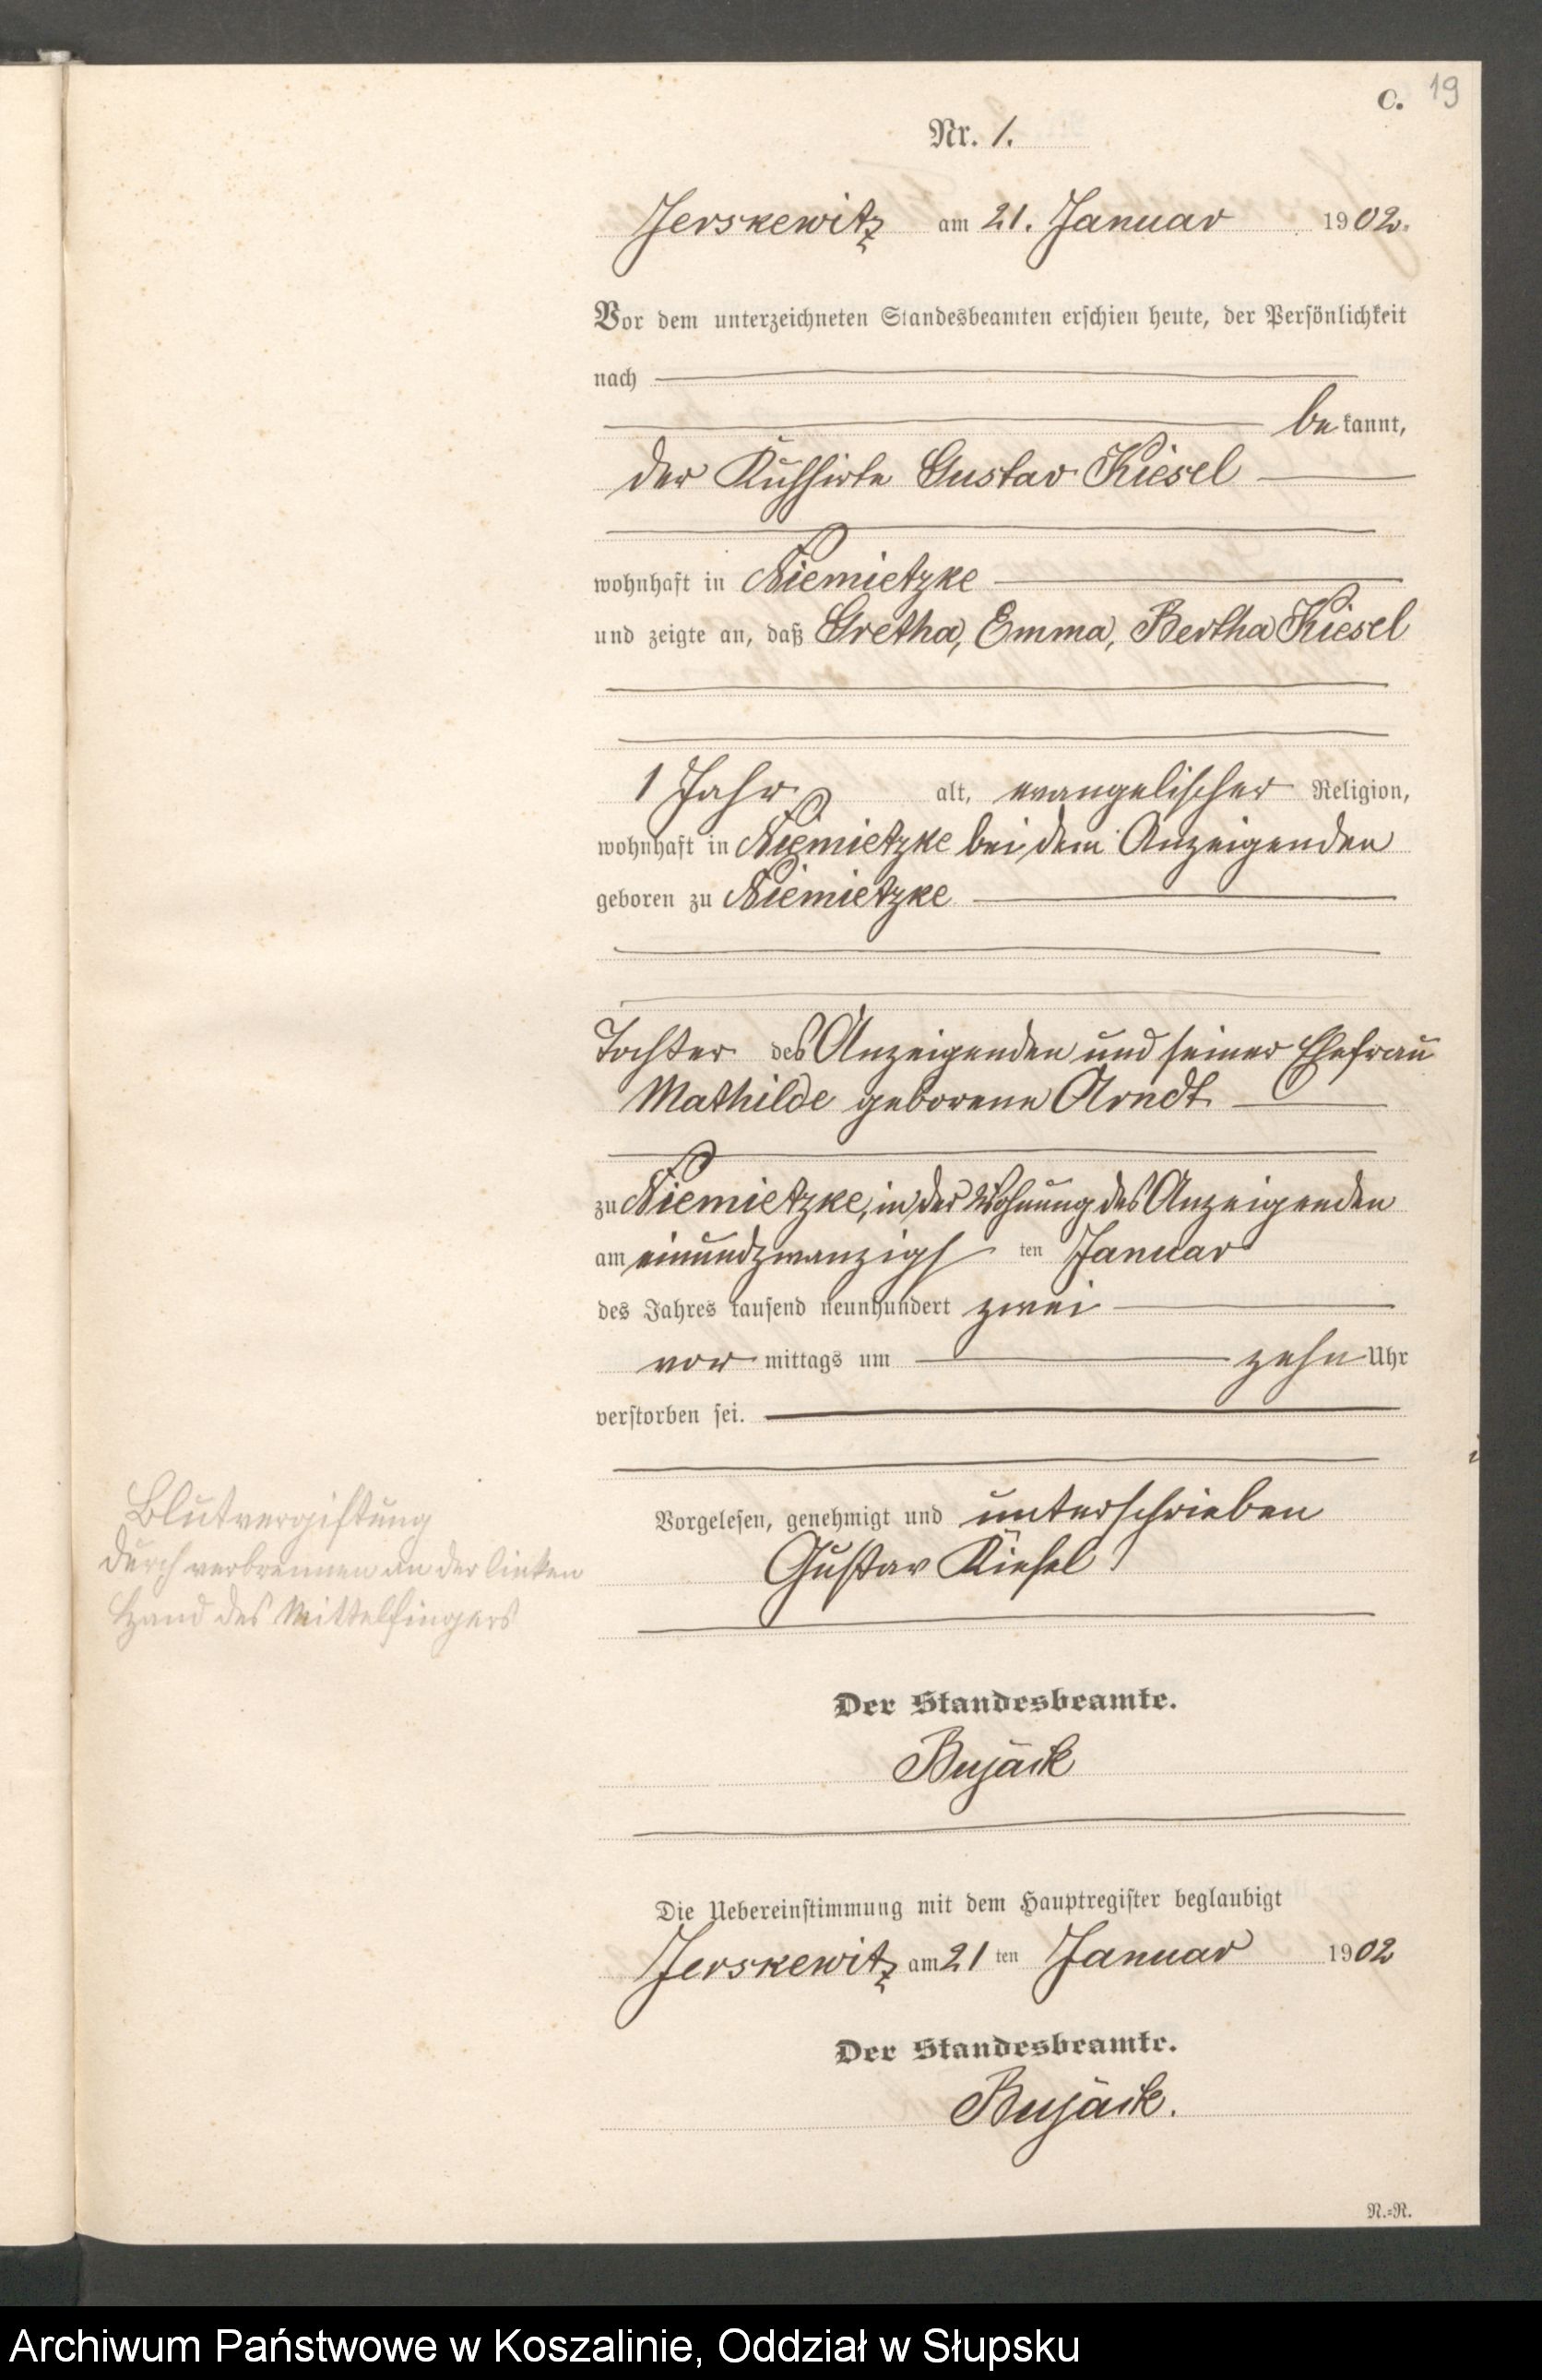 C. 19
Nr. 1.
Jerskewitz am 21. Januar 1902.
Vor dem unterzeichneten Standesbeamten erschien heute, der Persönlichkeit
nach
bekannt,
der Kuhhirte Gustav Kiesel
wohnhaft in Niemietzke
und zeigte an, daß Gretha, Emma, Bertha Kiesel
1 Jahr alt, evangelischer Religion,
wohnhaft in Niemietzke bei dem Anzeigenden
geboren zu Niemietzke
Tochter des Anzeigenden und seiner Ehefrau
Mathilde geborene Arndt
zu Niemietzke, in der Wohnung des Anzeigenden
am einundzwanzigsten Januar
des Jahres tausend neunhundert zwei
vormittags um zehn Uhr
verstorben sei.
Vorgelesen, genehmigt und unterschrieben
Gustav Kiesel
Blutvergiftung
durch verbrennen an der linken
Hand des Mittelfingers
Der Standesbeamte.
Bujack
Die Uebereinstimmung mit dem Hauptregister beglaubigt
Jerskewitz am 21ten Januar 1902
Der Standesbeamte.
Bujack.
N.=R.
Archiwum Państwowe w Koszalinie, Oddział w Słupsku